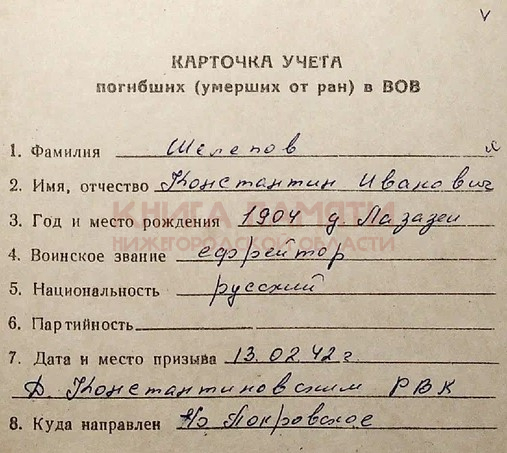 V
КАРТОЧКА УЧЕТА
погибших (умерших от ран) в ВОВ
1. Фамилия Шелепов
2. Имя, отчество Константин Иванович
КНИГА ПАМЯТИ
3. Год и место рождения 1904 д Лазазеи
НИЖЕГОРОДСКОЙ ОБЛАСТИ
4. Воинское звание ефрейтор
5. Национальность русский
6. Партийность
7. Дата и место призыва 13.02.42 г
Д. Константиновским РВК
8. Куда направлен Покровское